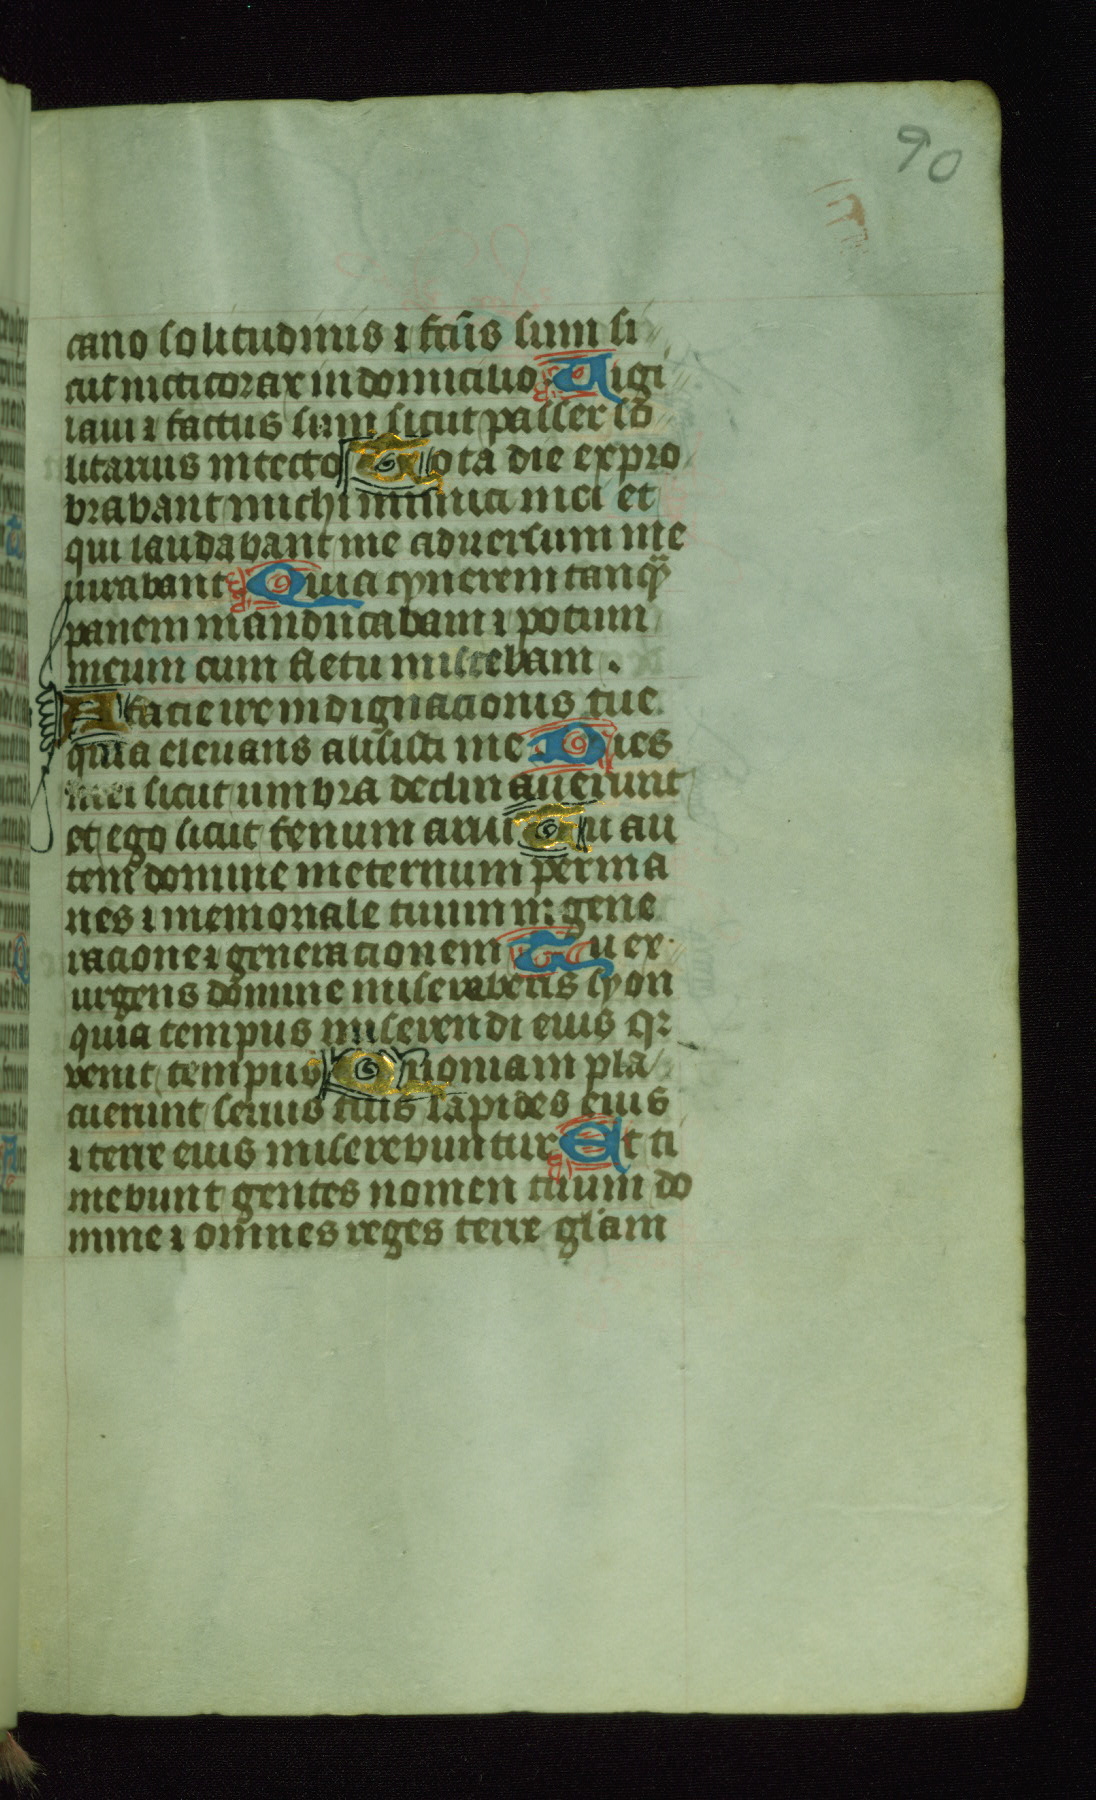 90
cano solitudinis ⁊ fcu̅s sum si
cut nicticorax in domicilio Uigi
laui ⁊ factus sum sicut passer so
litarius in tecto Tota die expro
brabant michi inimici mei et
qui laudabant me aduersum me
iurabant Quia cynerem tanq̃
panem manducabam ⁊ potum
meum cum fletu miscebam .
A facie ire indignacionis tue
quia eleuans alisisti me Dies
mei sicut umbra declinauerunt
et ego sicut fenum arui Tu au
tem domine in eternum perma
nes ⁊ memoriale tuum in gene
racione ⁊ generacionem Tu ex
urgens domine misereberis syon
quia tempus miserendi eius qꝛ
venit tempus Quoniam pla
cuerunt seruis tuis lapides eius
⁊ terre eius miserebuntur Et ti
mebunt gentes nomen tuum do
mine ⁊ omnes reges terre gl̅am